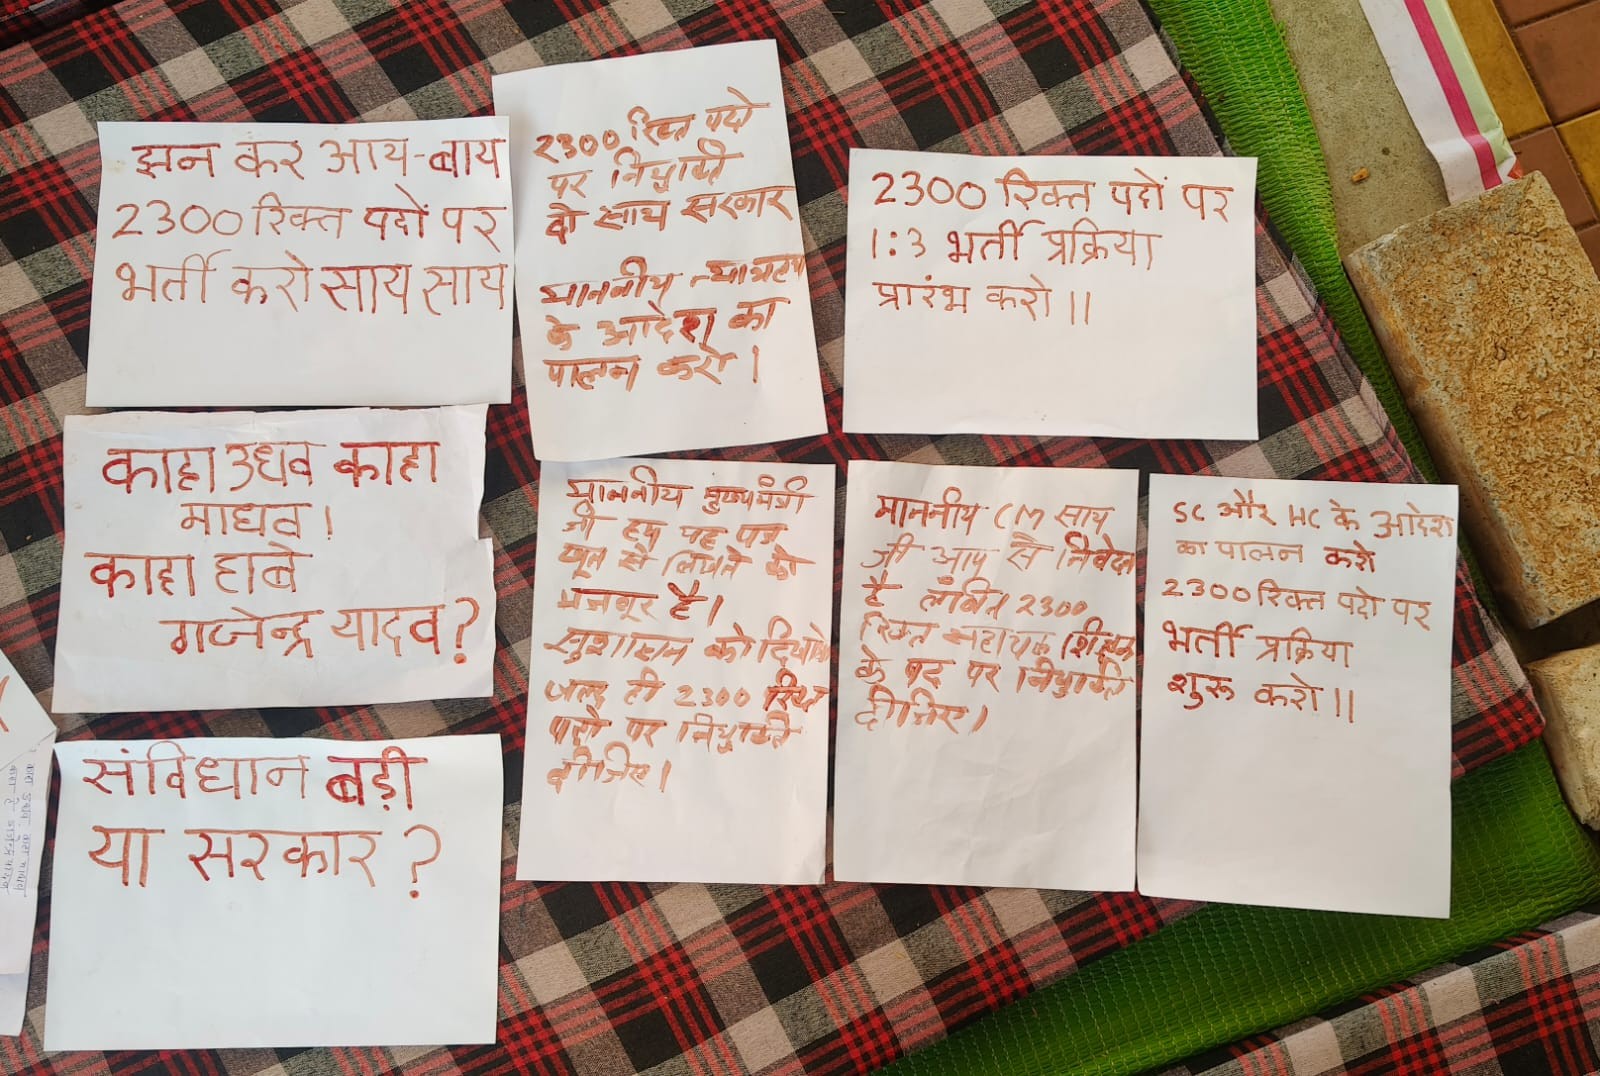 झन कर आय-बाय
2300 रिक्त पदों पर
भर्ती करो साय साय
2300 रिक्त पदो
पर नियुक्ति
दो साय सरकार
माननीय न्यायालय
के आदेश का
पालन करो ।
2300 रिक्त पदों पर
1:3 भर्ती प्रक्रिया
प्रारंभ करो ॥
काहा उधव काहा
माधव ।
काहा हाबे
गजेन्द्र यादव ?
माननीय मुख्यमंत्री
जी हम यह पत्र
खून से लिखने को
मजबूर है ।
सुशासन को दिखाये
जल्द ही 2300 रिक्त
पदो पर नियुक्ति
दीजिए ।
माननीय CM साय
जी आप से निवेदन
है लंबित 2300
रिक्त सहायक शिक्षक
के पद पर नियुक्ति
दीजिए ।
SC और HC के आदेश
का पालन करो
2300 रिक्त पदो पर
भर्ती प्रक्रिया
शुरू करो ॥
संविधान बड़ी
या सरकार ?